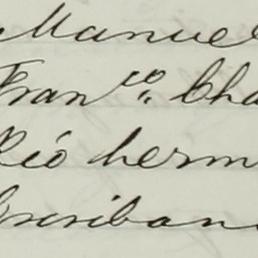 Manuel
Fran.co Cha
Rió herm
Escriban